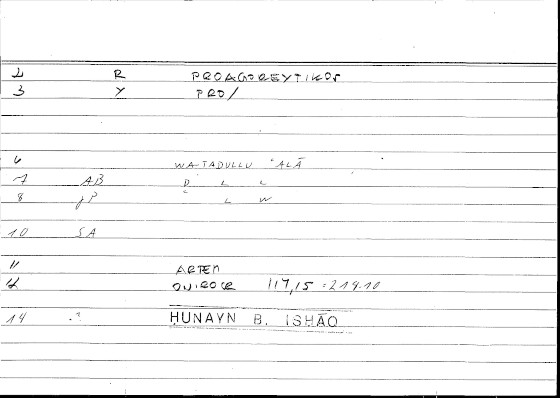 2 R PROAGOREYTIKOS
3 Y PRO/
6 WA-TADULLU ʿALĀ
7 AB D L L
8 JP L W
10 SA
11 ARTEM
12 ONIROCR 117,15 = 219.10
14 .? HUNAYN B. ISHĀQ